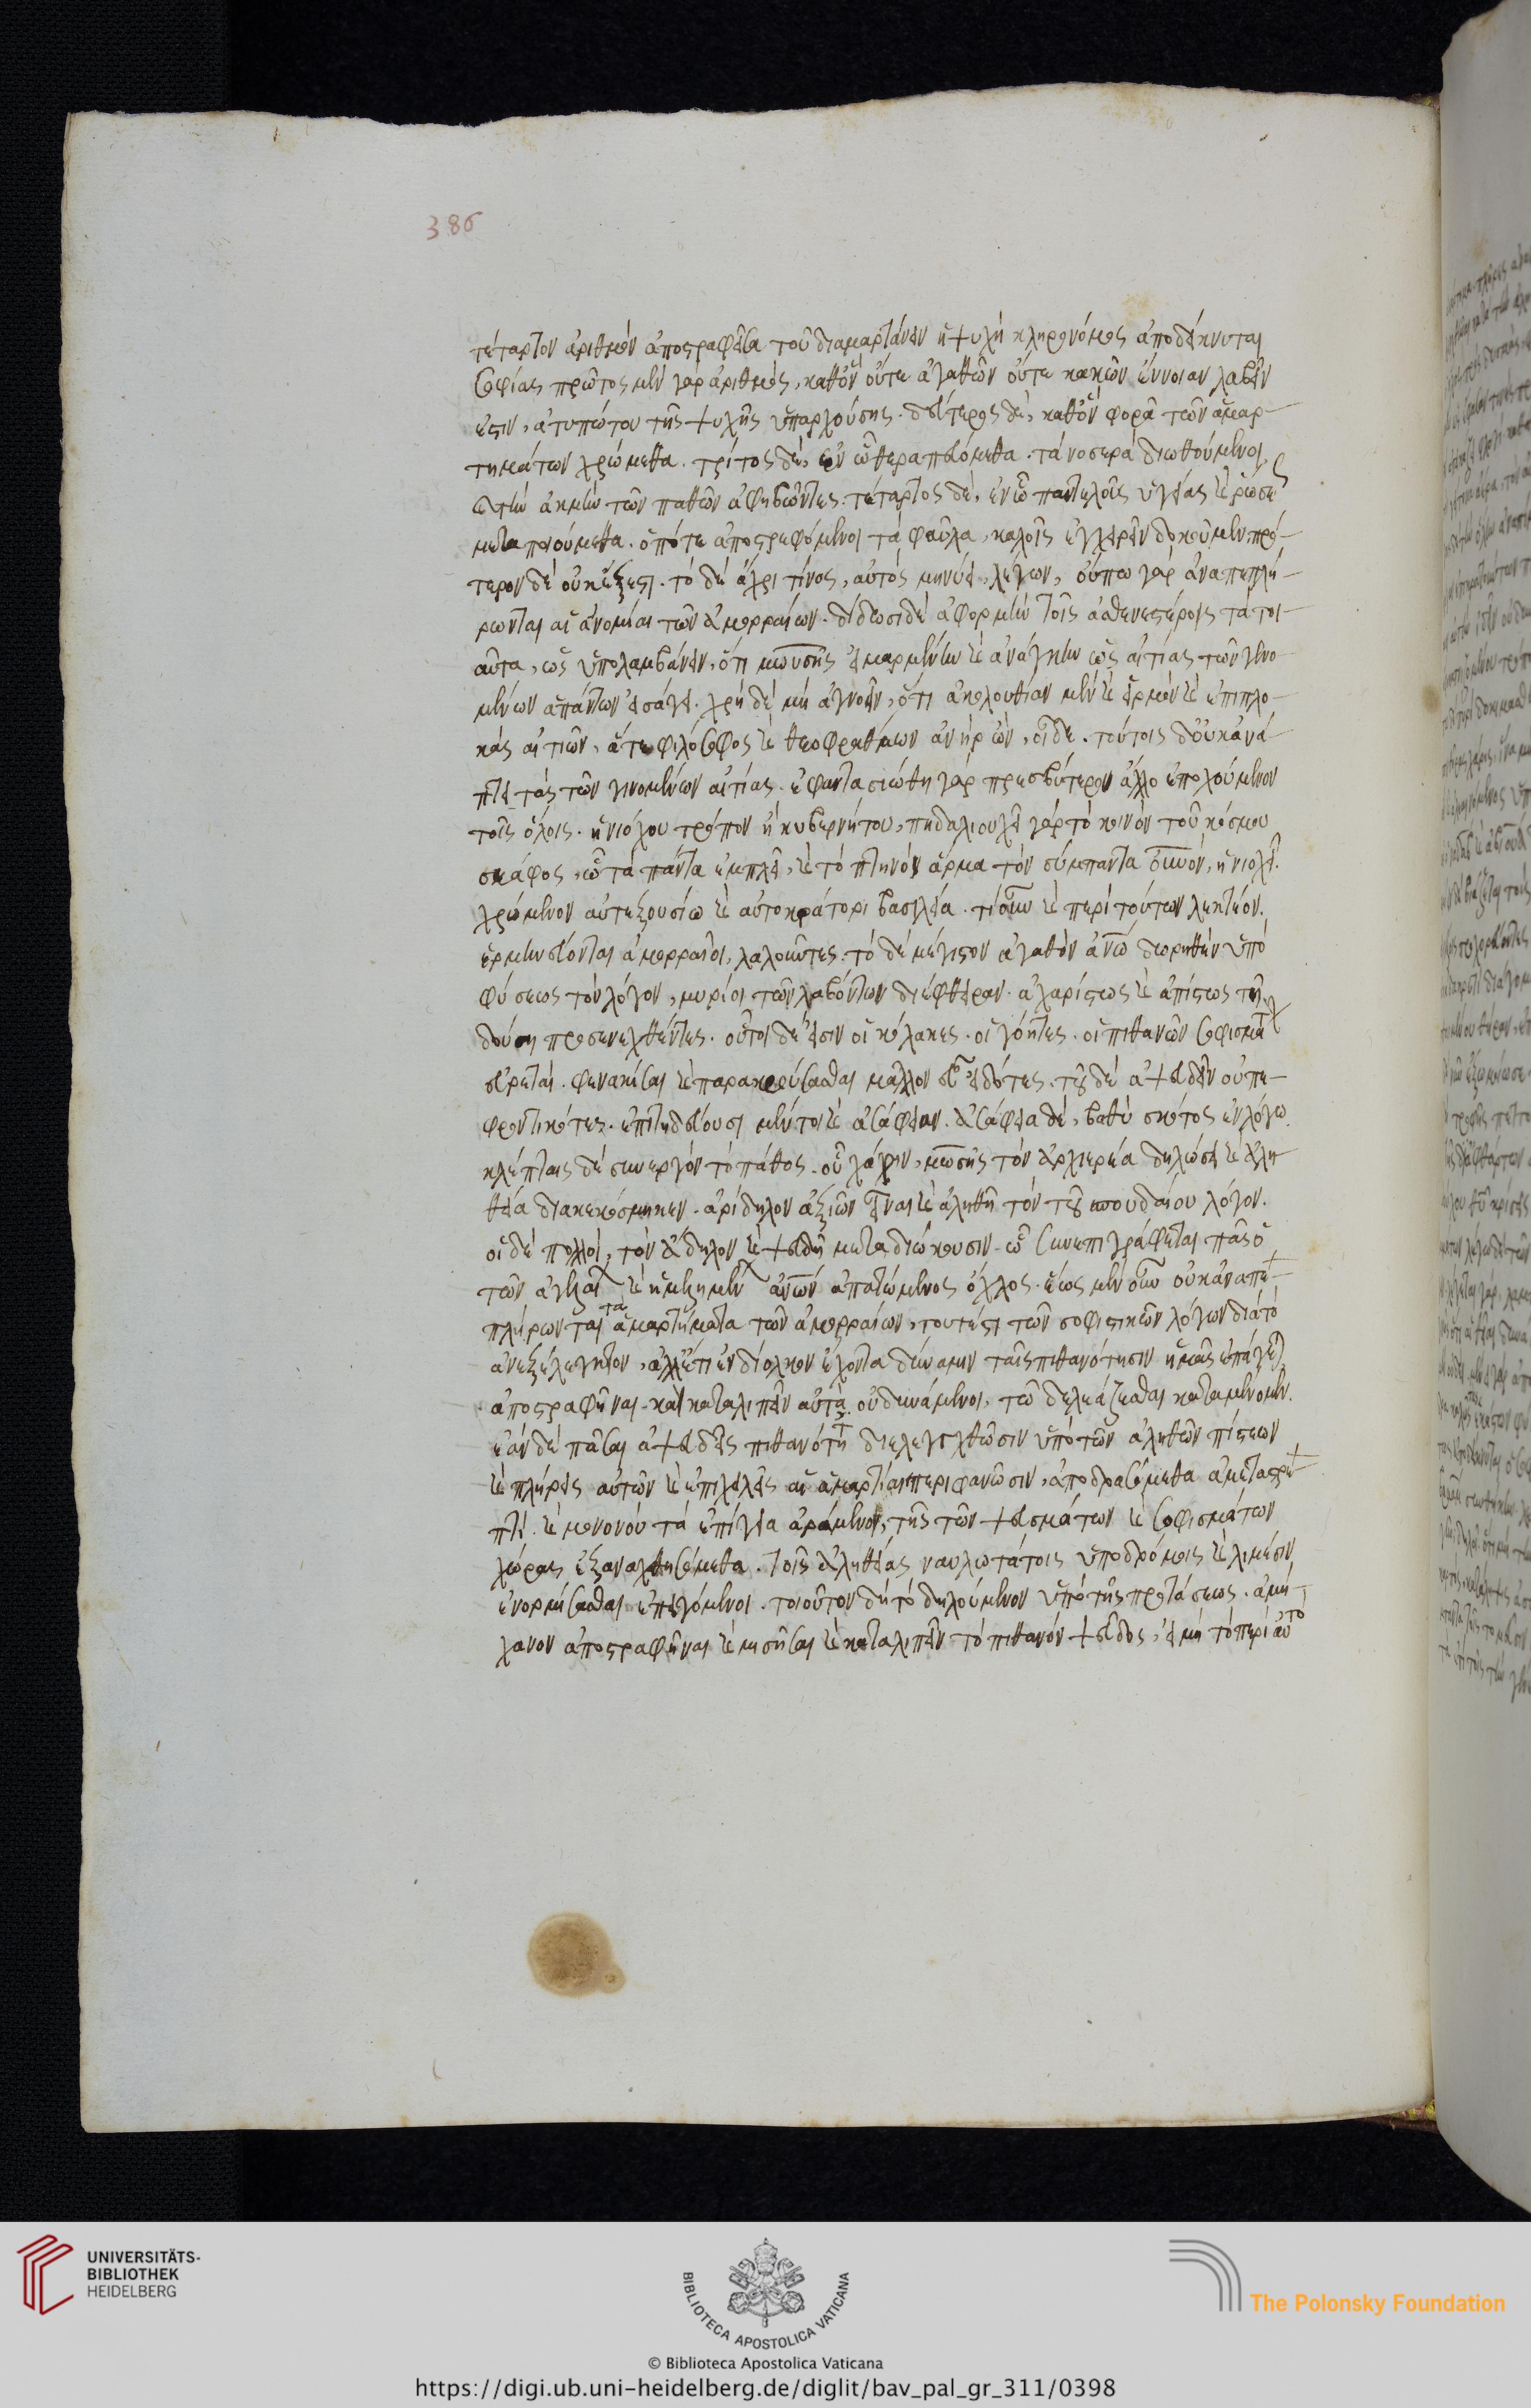 386
τέταρτον ἀριθμὸν ἀποστραφεῖσα τοῦ διαμαρτάνειν ἡ ψυχὴ κληρονόμος ἀποδείκνυται
σοφίας πρῶτος μὲν γὰρ ἀριθμὸς, καθ' ὃν οὔτε ἀγαθῶν οὔτε κακῶν ἔννοιαν λαβεῖν
ἔστιν, ἀτυπώτου τῆς ψυχῆς ὑπαρχούσης. δεύτερος δὲ, καθ' ὃν φορᾶ τῶν ἁμαρ-
τημάτων χρώμεθα. τρίτος δὲ, ἐν ᾧ θεραπευόμεθα. τὰ νοσερὰ διωθούμενοι,
καὶ τὴν ἀκμὴν τῶν παθῶν ἀφηβῶντες. τέταρτος δὲ, ἐν ᾧ παντελοῦς ὑγείας καὶ ῥώσε
μεταποιούμεθα. ὁπότε ἀποστρεφόμενοι τὰ φαῦλα, καλοῖς ἐγχειρεῖν δοκοῦμεν. πρό-
τερον δὲ οὐκ ἔξεστι. τὸ δὲ ἄχρι τίνος, αὐτὸς μηνύει, λέγων, οὔπω γὰρ ἀναπεπλή-
ρωνται αἱ ἀνομίαι τῶν ἀμορραίων. δίδωσι δὲ ἀφορμὴν τοῖς ἀσθενεστέροις τὰ τοι-
αῦτα, ὡς ὑπολαμβάνειν, ὅτι μωυσῆς εἱμαρμένην καὶ ἀνάγκην ὡς αἰτίας τῶν γινο-
μένων ἁπάντων εἰσάγει. χρὴ δὲ μὴ ἀγνοεῖν, ὅτι ἀκολουθίαν μὲν καὶ εἱρμὸν καὶ ἐπιπλο-
κὰς αἰτιῶν, ἅτε φιλόσοφος καὶ θεοφραδμων ἀνὴρ ὢν, οἶδε. τούτοις δ' οὐκ ἀνά-
πτει τὰς τῶν γινομένων αἰτίας. ἐφαντασιώθη γὰρ πρεσβύτερον ἄλλο ἐποχούμενον
τοῖς ὅλοις. ἡνιόχου τρόπον ἢ κυβερνήτου, πηδαλιουχεῖ γὰρ τὸ κοινὸν τοῦ κόσμου
σκάφος, ᾧ τὰ πάντα ἐμπλεῖ, καὶ τὸ πτηνὸν ἅρμα τὸν σύμπαντα οὐνὸν, ἡνιοχεῖ.
χρώμενον αὐτεξουσίω καὶ αὐτοκράτορι βασιλεία. τί οὖν καὶ περὶ τούτων λεκτέον.
ἑρμηνεύονται ἀμορραῖοι, λαλοῦντες. τὸ δὲ μέγιστον ἀγαθὸν ἀνῶ δωρηθὲν ὑπὸ
φύσεως τὸν λόγον, μυρίοι τῶν λαβόντων διέφθειραν. ἀχαρίστως καὶ ἀπίστως τῆ
δούση προσενεχθέντες. οὗτοι δέ εἰσιν οἱ κόλακες. οἱ γόητες. οἱ πιθανῶν σοφισμάτ
εὑρεταί. φενακίσαι καὶ παρακρούσασθαι μᾶλλον εὖ εἰδότες. τοῦ δὲ ἀψευδεῖν οὐ πε-
φροντικότες. ἐπιτηδεύουσι μέντοι καὶ ἀσάφειαν. ἀσάφεια δὲ, βαθὺ σκότος ἐν λόγω.
κλέπταις δὲ συνεργὸν τὸ πάθος. οὗ χάριν, μωσῆς τὸν ἀρχιερέα δηλώσει καὶ ἀλη-
θεία διακεκόσμηκεν. ἀρίδηλον ἀξιῶν εἶναι καὶ ἀληθῆ τὸν τοῦ σπουδαίου λόγον.
οἱ δὲ πολλοὶ, τὸν ἄδηλον καὶ ψευδῆ μεταδιώκουσιν. ᾧ συνεπιγράφεται πᾶς ὁ
τῶν ἀγελαί καὶ ἠμελημέν ἀνῶν ἀπατώμενος ὄχλος. ἕως μὲν οὖν οὐκ ἀναπε-
πλήρωνται τὰ ἁμαρτήματα τῶν ἀμορραίων, τουτέστι τῶν σοφιστικῶν λόγων διὰ τὸ
ἀνεξέλεγκτον, ἀλλ' ἔτι ἐνδιολκον ἔχοντα δύναμιν ταῖς πιθανότησιν ἡμᾶς ἐπάγετ
ἀποστραφῆναι. καὶ καταλιπεῖν αὐτὰ οὐ δυνάμενοι, τῶ δελεάζεσθαι καταμένομεν.
ἐὰν δὲ πᾶσαι ἀψευδεῖς πιθανότη διελεγχθῶσιν ὑπὸ τῶν ἀληθῶν πίστεων
καὶ πλήρεις αὐτῶν καὶ ἐπιχειλεῖς αἱ ἁμαρτίαι περιφανῶσιν, ἀποδρασόμεθα ἀμεταστρε-
πτί. καὶ μονονοὺ τὰ ἐπίγεια ἀράμενοι, τῆς τῶν ψευσμάτων καὶ σοφισμάτων
χώρας ἐξαναχθησόμεθα. τοῖς ἀληθείας ναυλωτάτοις ὑποδρόμοις καὶ λιμέσιν
ἐνορμίσασθαι ἐπειγόμενοι. τοιοῦτον δή τὸ δηλούμενον ὑπὸ τῆς προτάσεως. ἀμή-
χανον ἀποστραφῆναι καὶ μισῆσαι καὶ καταλιπεῖν τὸ πιθανὸν ψεῦδος, εἰ μὴ τὸ περὶ αὐτὸ
UNIVERSITÄTS-
BIBLIOTHEK
HEIDELBERG
BIBLIOTECA APOSTOLICA VATICANA
The Polonsky Foundation
© Biblioteca Apostolica Vaticana
https://digi.ub.uni-heidelberg.de/diglit/bav_pal_gr_311/0398